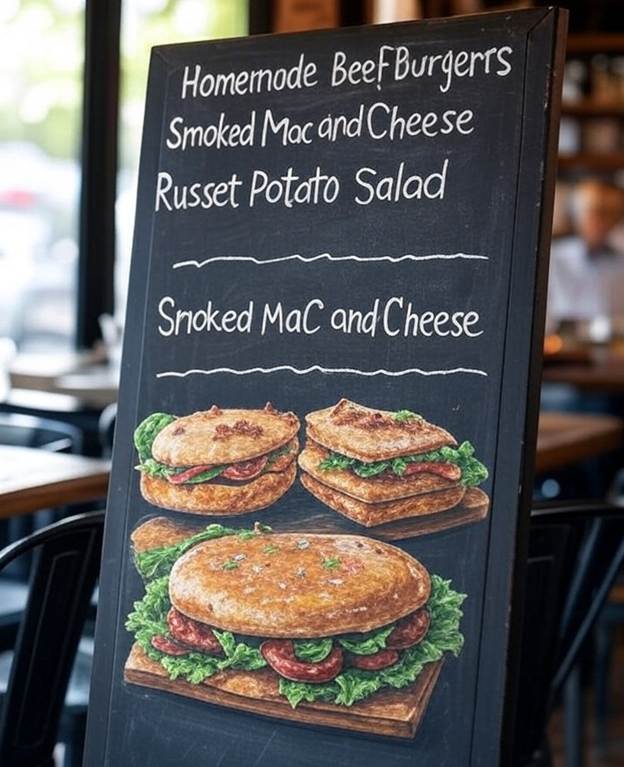 Homernode Beef Burgerrs
Smoked Mac and Cheese
Russet Potato Salad
Srioked MaC and Cheese